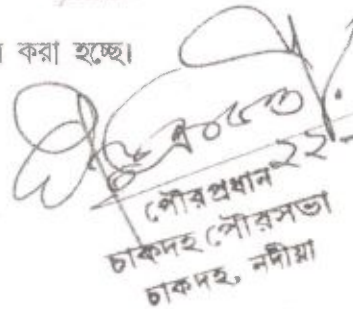 করা হচ্ছে।
২২
পৌরপ্রধান
চাকদহ পৌরসভা
চাকদহ, নদীয়া